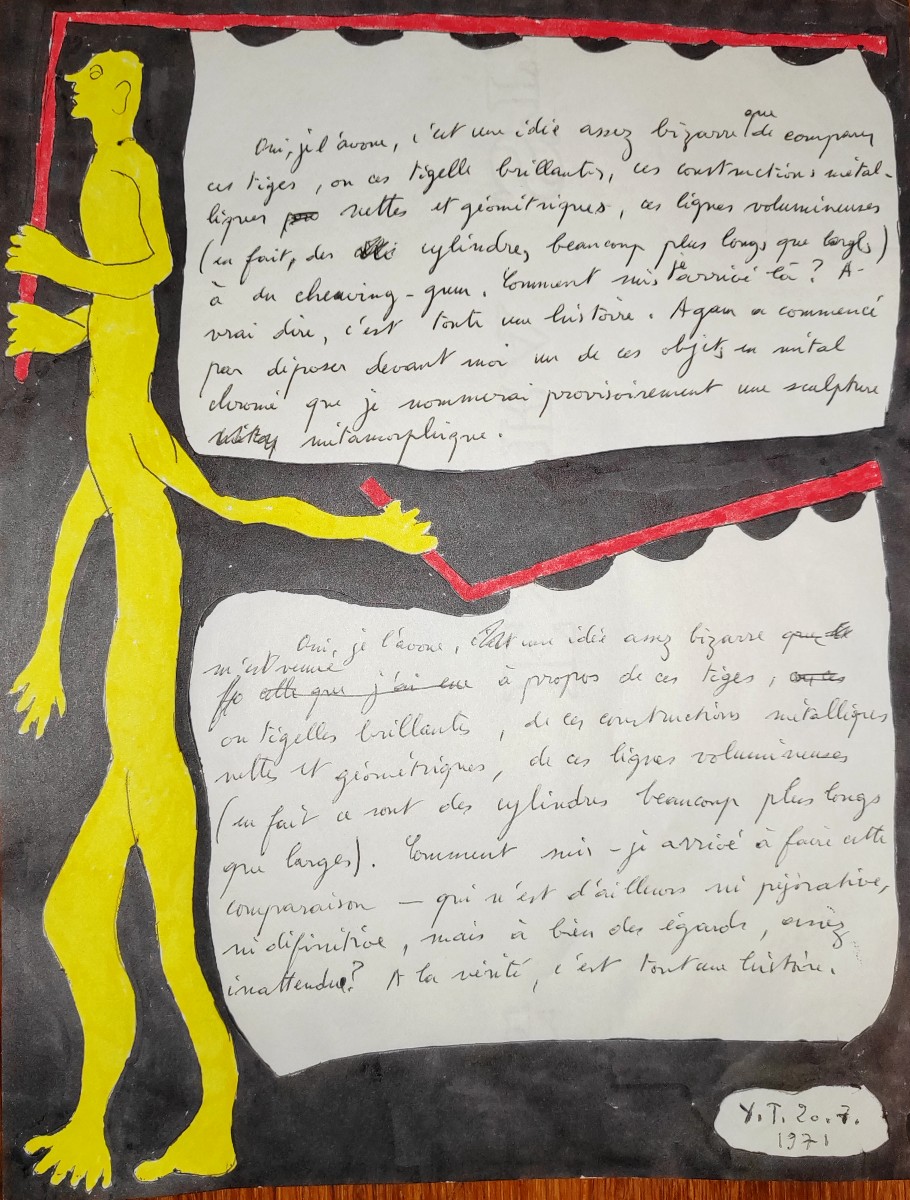 Oui, je l'avoue, c'est une idée assez bizarre que de comparer
ces tiges, ou ces tigelle brillantes, ces constructions métal-
liques nettes et géométriques, ces lignes volumineuses
(en fait, des cylindres beaucoup plus longs que larges)
à du chewing-gum. Comment suis-je arrivé là ? A-
vrai dire, c'est toute une histoire. Agam a commencé
par déposer devant moi un de ces objets en métal
chromé que je nommerai provisoirement une sculpture
métamorphique.
Oui, je l'avoue, c'est une idée assez bizarre que de
m'est venue
celle que j'ai eue à propos de ces tiges, ou ces
ou tigelles brillantes, de ces constructions métalliques
nettes et géométriques, de ces lignes volumineuses
(en fait ce sont des cylindres beaucoup plus longs
que larges). Comment suis-je arrivé à faire cette
comparaison — qui n'est d'ailleurs ni péjorative,
ni définitive, mais à bien des égards, assez
inattendue? A la vérité, c'est tout une histoire.
Y.T. 20.7.
1971